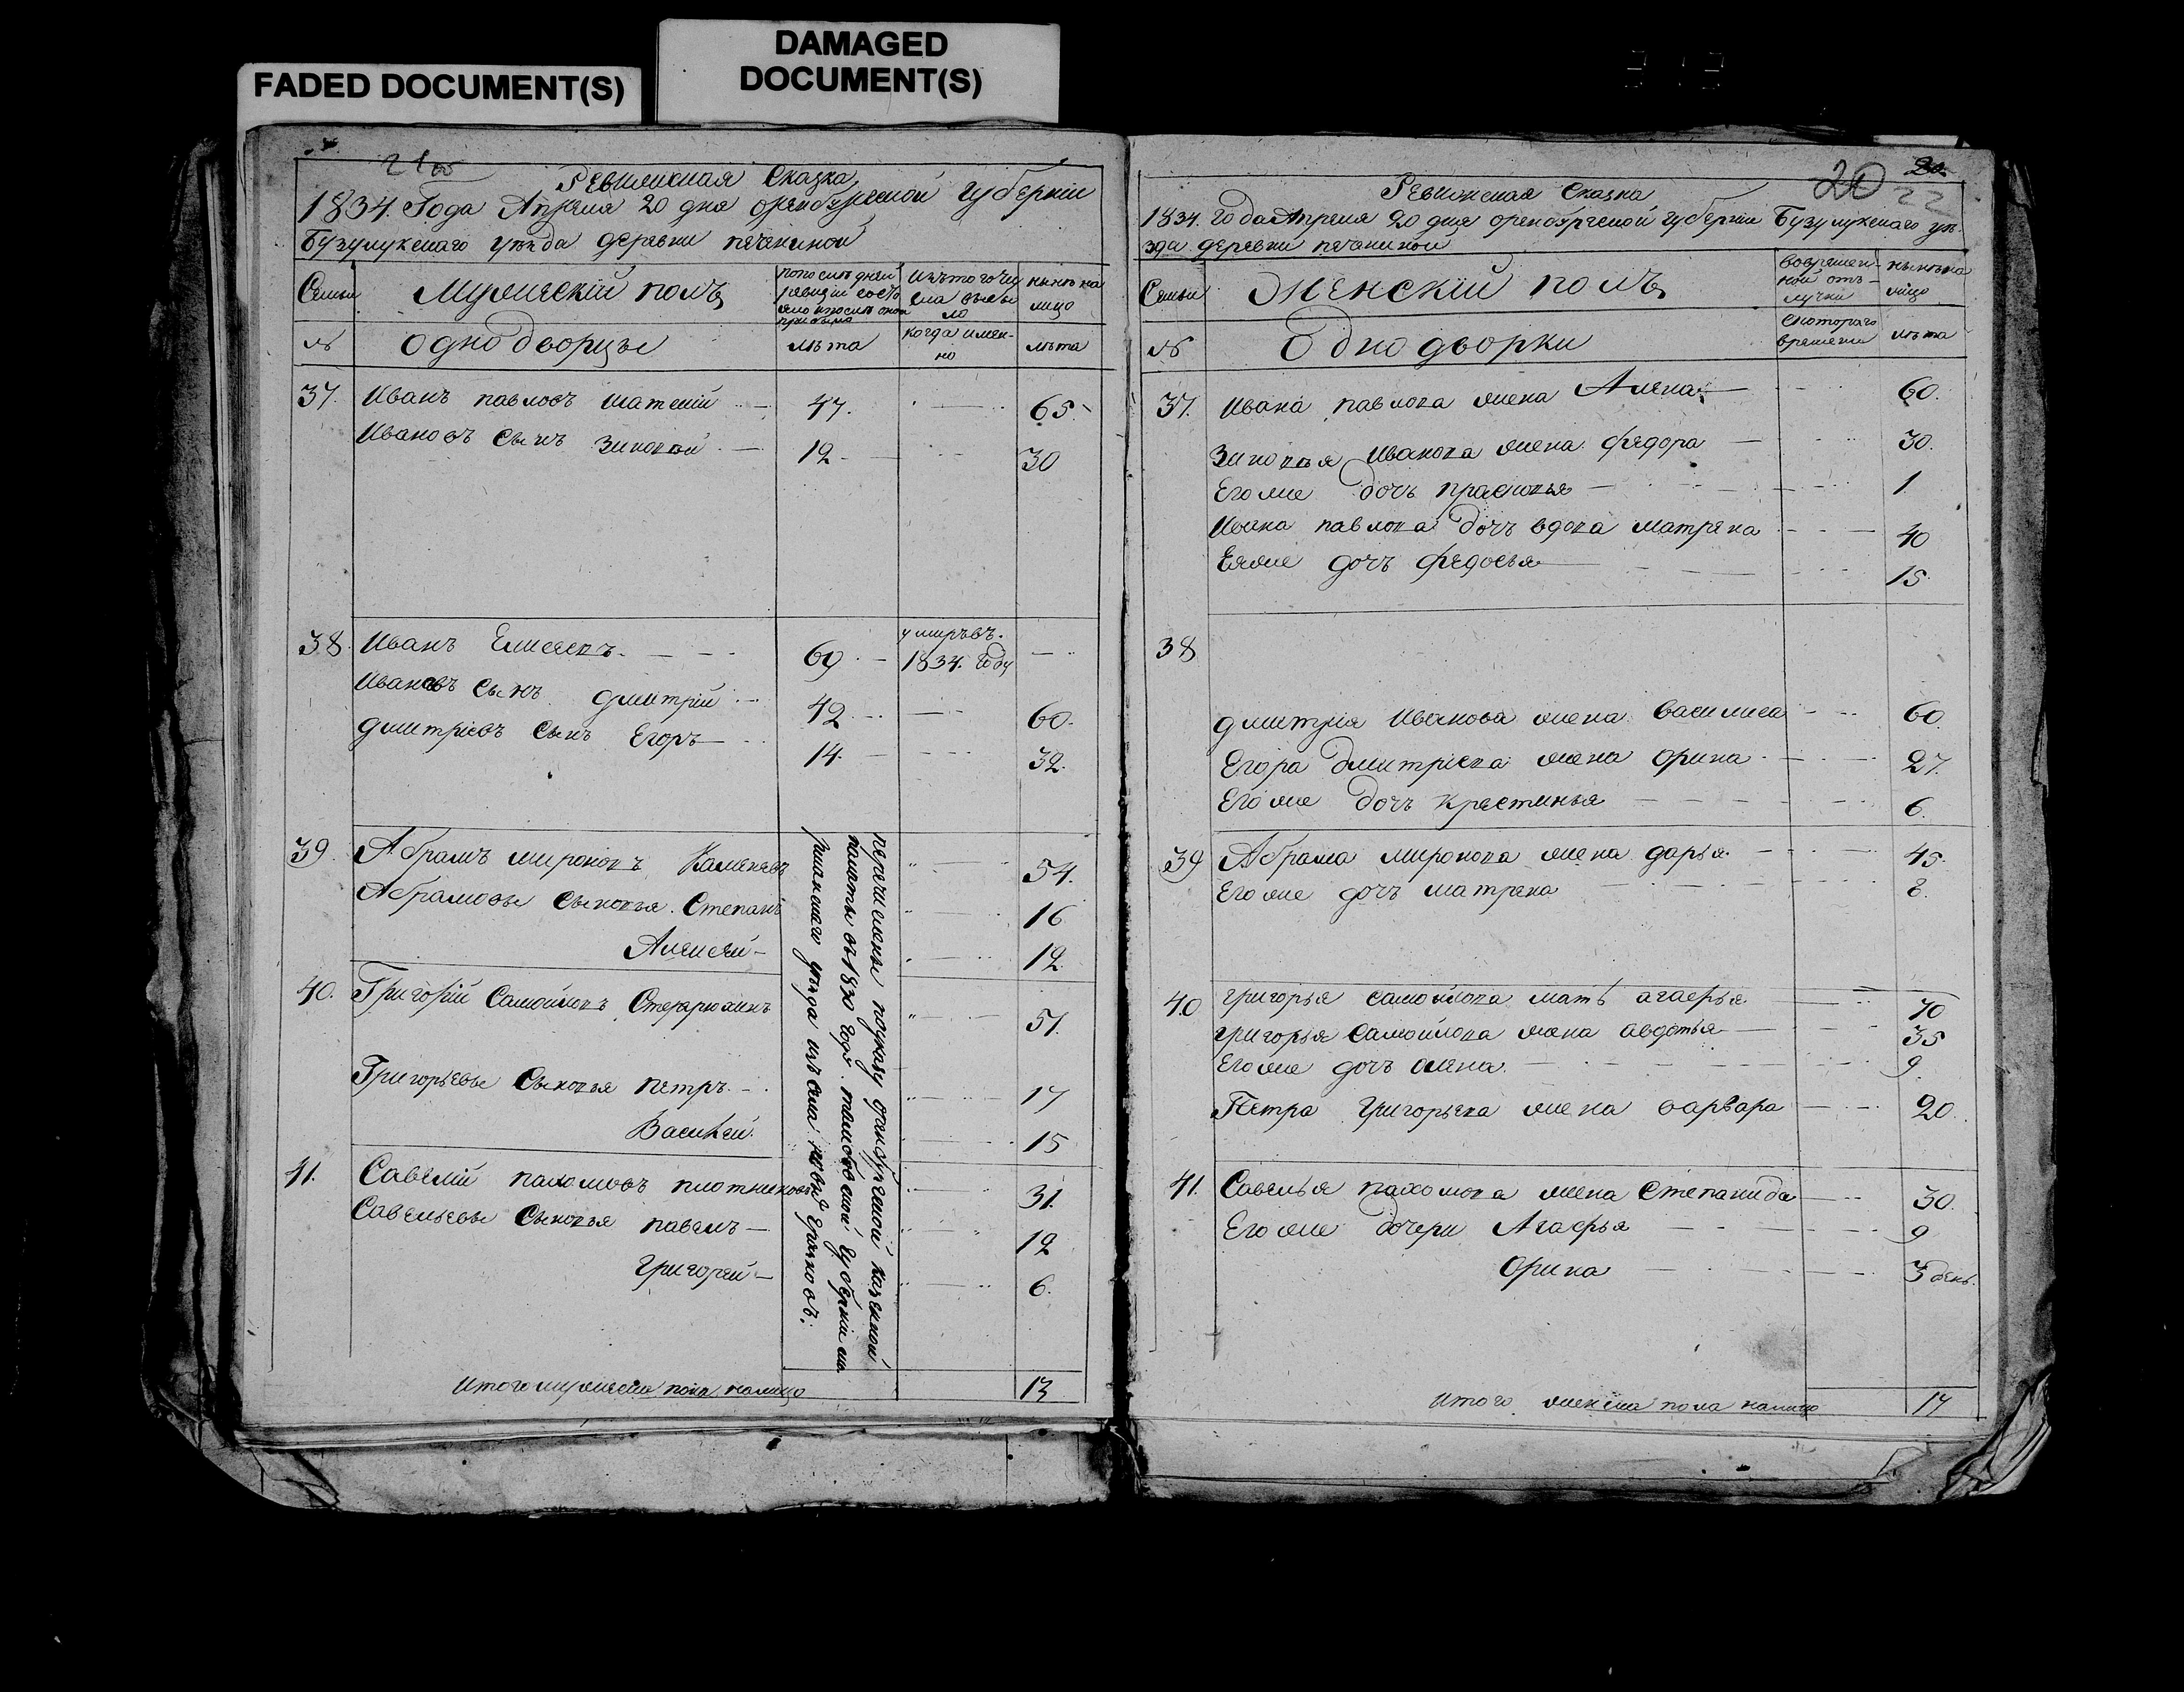 FADED DOCUMENT(S)
DAMAGED
DOCUMENT(S)
Ревижская Сказка
1834. Года Апреля 20 дня оренбургской губернiи
Бузулукскаго уѣзда деревни печениной
Семьи
Мужескiй полъ
нынѣ на
лицо
№
однодворцы
лѣта
когда имян-
но
лѣта
37. Иванъ павловъ шатскiй 47. 65
Ивановъ сынъ Зиновѣй 12 30
38. Иванъ Елисеевъ 69 умиръвъ.
1834. году
Ивановъ сынъ дмитрiй 42 60.
дмитрiевъ сынъ Егоръ 14. 32.
39. Абрамъ мироновъ Каменявъ 54.
Абрамовы сыновья Степанъ 16
Алексей 12.
40. Григорiй Самойловъ 51.
Григорьевы Сыновья петръ 17
Василей. 15
41. Савелiй пахомовъ плотниковъ 31.
Савельевы Сыновья павелъ 12
Григорей 6.
перечислены поуказу оренбургской казенной
палаты въ 1830 годе тамбовской губернiи мо.
ршанскаго уѣзда изъ села новы
Итого мужеска пола налицо 13
20 22
Ревижская Сказка
1834. года Апреля 20 дня оренбургской губернiи Бузулукскаго уѣ-
зда деревни печениной
Семьи
Женскiй полъ
вовремен-
ной отъ-
лучки
нынѣ на
лицо
№
Однодворки
скотораго
времени
лѣта
37. Ивана павлова жена Алена 60.
Зиновья Иванова жена федора 30.
Его же дочь прасковья 1.
Ивана павлова дочь вдова матрена 40
Ея же дочь федосья 15.
38
дмитрия Иванова жена василиса 60.
Егора дмитриева жена орина 27.
Его же дочь крестинья 6.
39 Абрама миронова жена дарья 45.
Его же дочь матрена 8.
40 григорья самойлова мать агафья 70
григорья самойлова жена авдотья 35
Его же дочь олена. 9
Петра григорьева жена варвара 20.
41. Савелья пахомова жена степанида 30.
Его же дочери Агафья 9
Орина 3 день.
Итого женска пола налицо 17